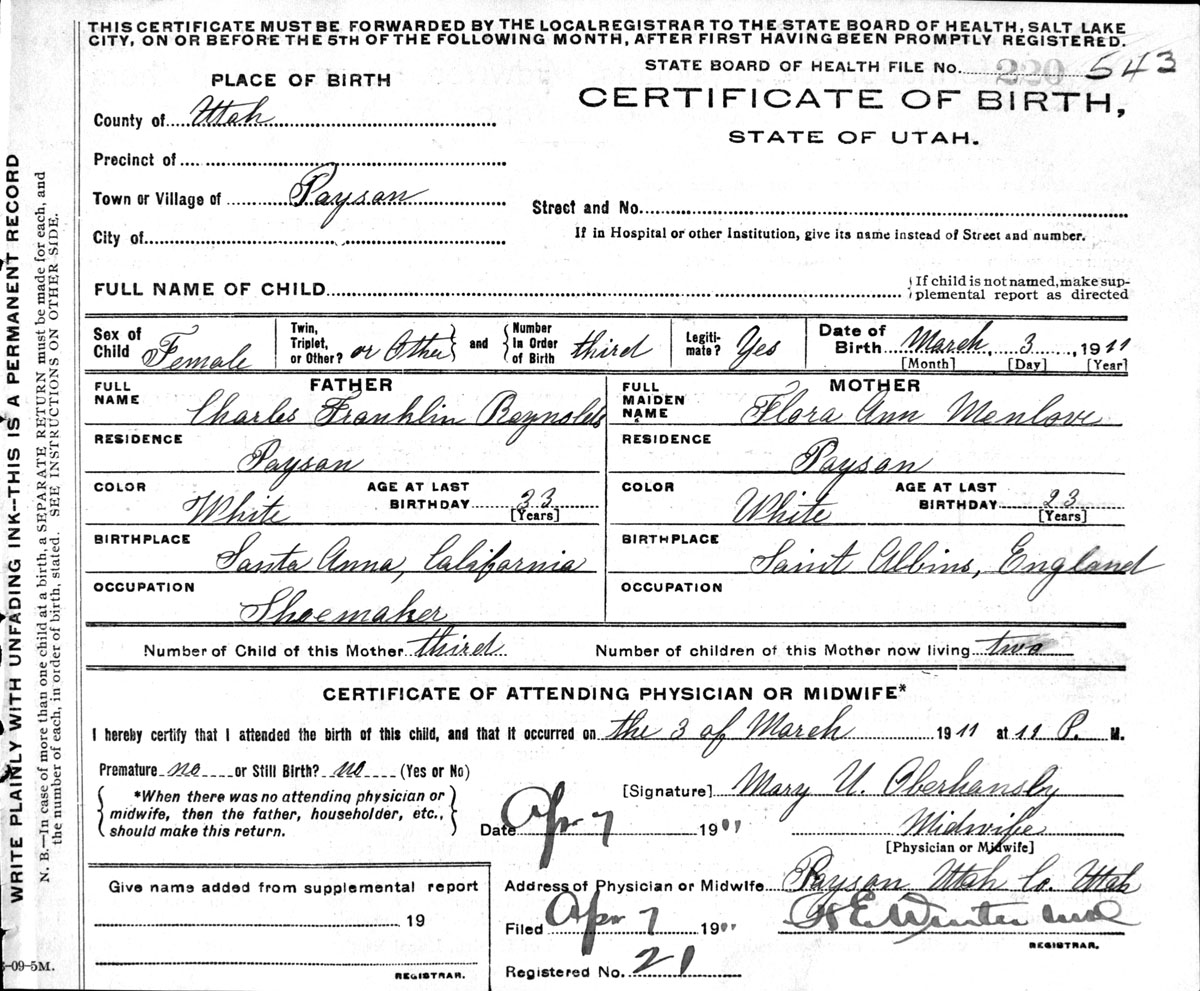 THIS CERTIFICATE MUST BE FORWARDED BY THE LOCAL REGISTRAR TO THE STATE BOARD OF HEALTH, SALT LAKE
CITY, ON OR BEFORE THE 5TH OF THE FOLLOWING MONTH, AFTER FIRST HAVING BEEN PROMPTLY REGISTERED.
STATE BOARD OF HEALTH FILE No. 220 543
PLACE OF BIRTH
CERTIFICATE OF BIRTH,
STATE OF UTAH.
County of Utah
Precinct of
Town or Village of Payson
Street and No.
City of
If in Hospital or other Institution, give its name instead of Street and number.
FULL NAME OF CHILD
If child is not named, make sup-
plemental report as directed
Sex of Child Female
Twin, Triplet, or Other? or Other
and
Number In Order of Birth third
Legiti-mate? Yes
Date of Birth March 3, 1911
[Month] [Day] [Year]
FATHER
FULL NAME Charles Franklin Reynolds
RESIDENCE
Payson
COLOR White
AGE AT LAST BIRTHDAY 33
[Years]
BIRTHPLACE
Santa Anna, California
OCCUPATION
Shoemaker
MOTHER
FULL MAIDEN NAME Flora Ann Menlove
RESIDENCE
Payson
COLOR White
AGE AT LAST BIRTHDAY 23
[Years]
BIRTHPLACE
Saint Albins, England
OCCUPATION
Number of Child of this Mother third
Number of children of this Mother now living two
CERTIFICATE OF ATTENDING PHYSICIAN OR MIDWIFE*
I hereby certify that I attended the birth of this child, and that it occurred on the 3 of March 1911 at 11 P. M.
Premature no or Still Birth? no (Yes or No)
*When there was no attending physician or
midwife, then the father, householder, etc.,
should make this return.
[Signature] Mary U. Oberhansly
Date Apr 7 1911
Midwife
[Physician or Midwife]
Address of Physician or Midwife Payson Utah Co. Utah
Filed Apr 7 1911
REGISTRAR.
Registered No. 21
Give name added from supplemental report
19
REGISTRAR.
WRITE PLAINLY WITH UNFADING INK--THIS IS A PERMANENT RECORD
N. B.—In case of more than one child at a birth, a SEPARATE RETURN must be made for each, and
the number of each, in order of birth, stated. SEE INSTRUCTIONS ON OTHER SIDE.
-09-5M.